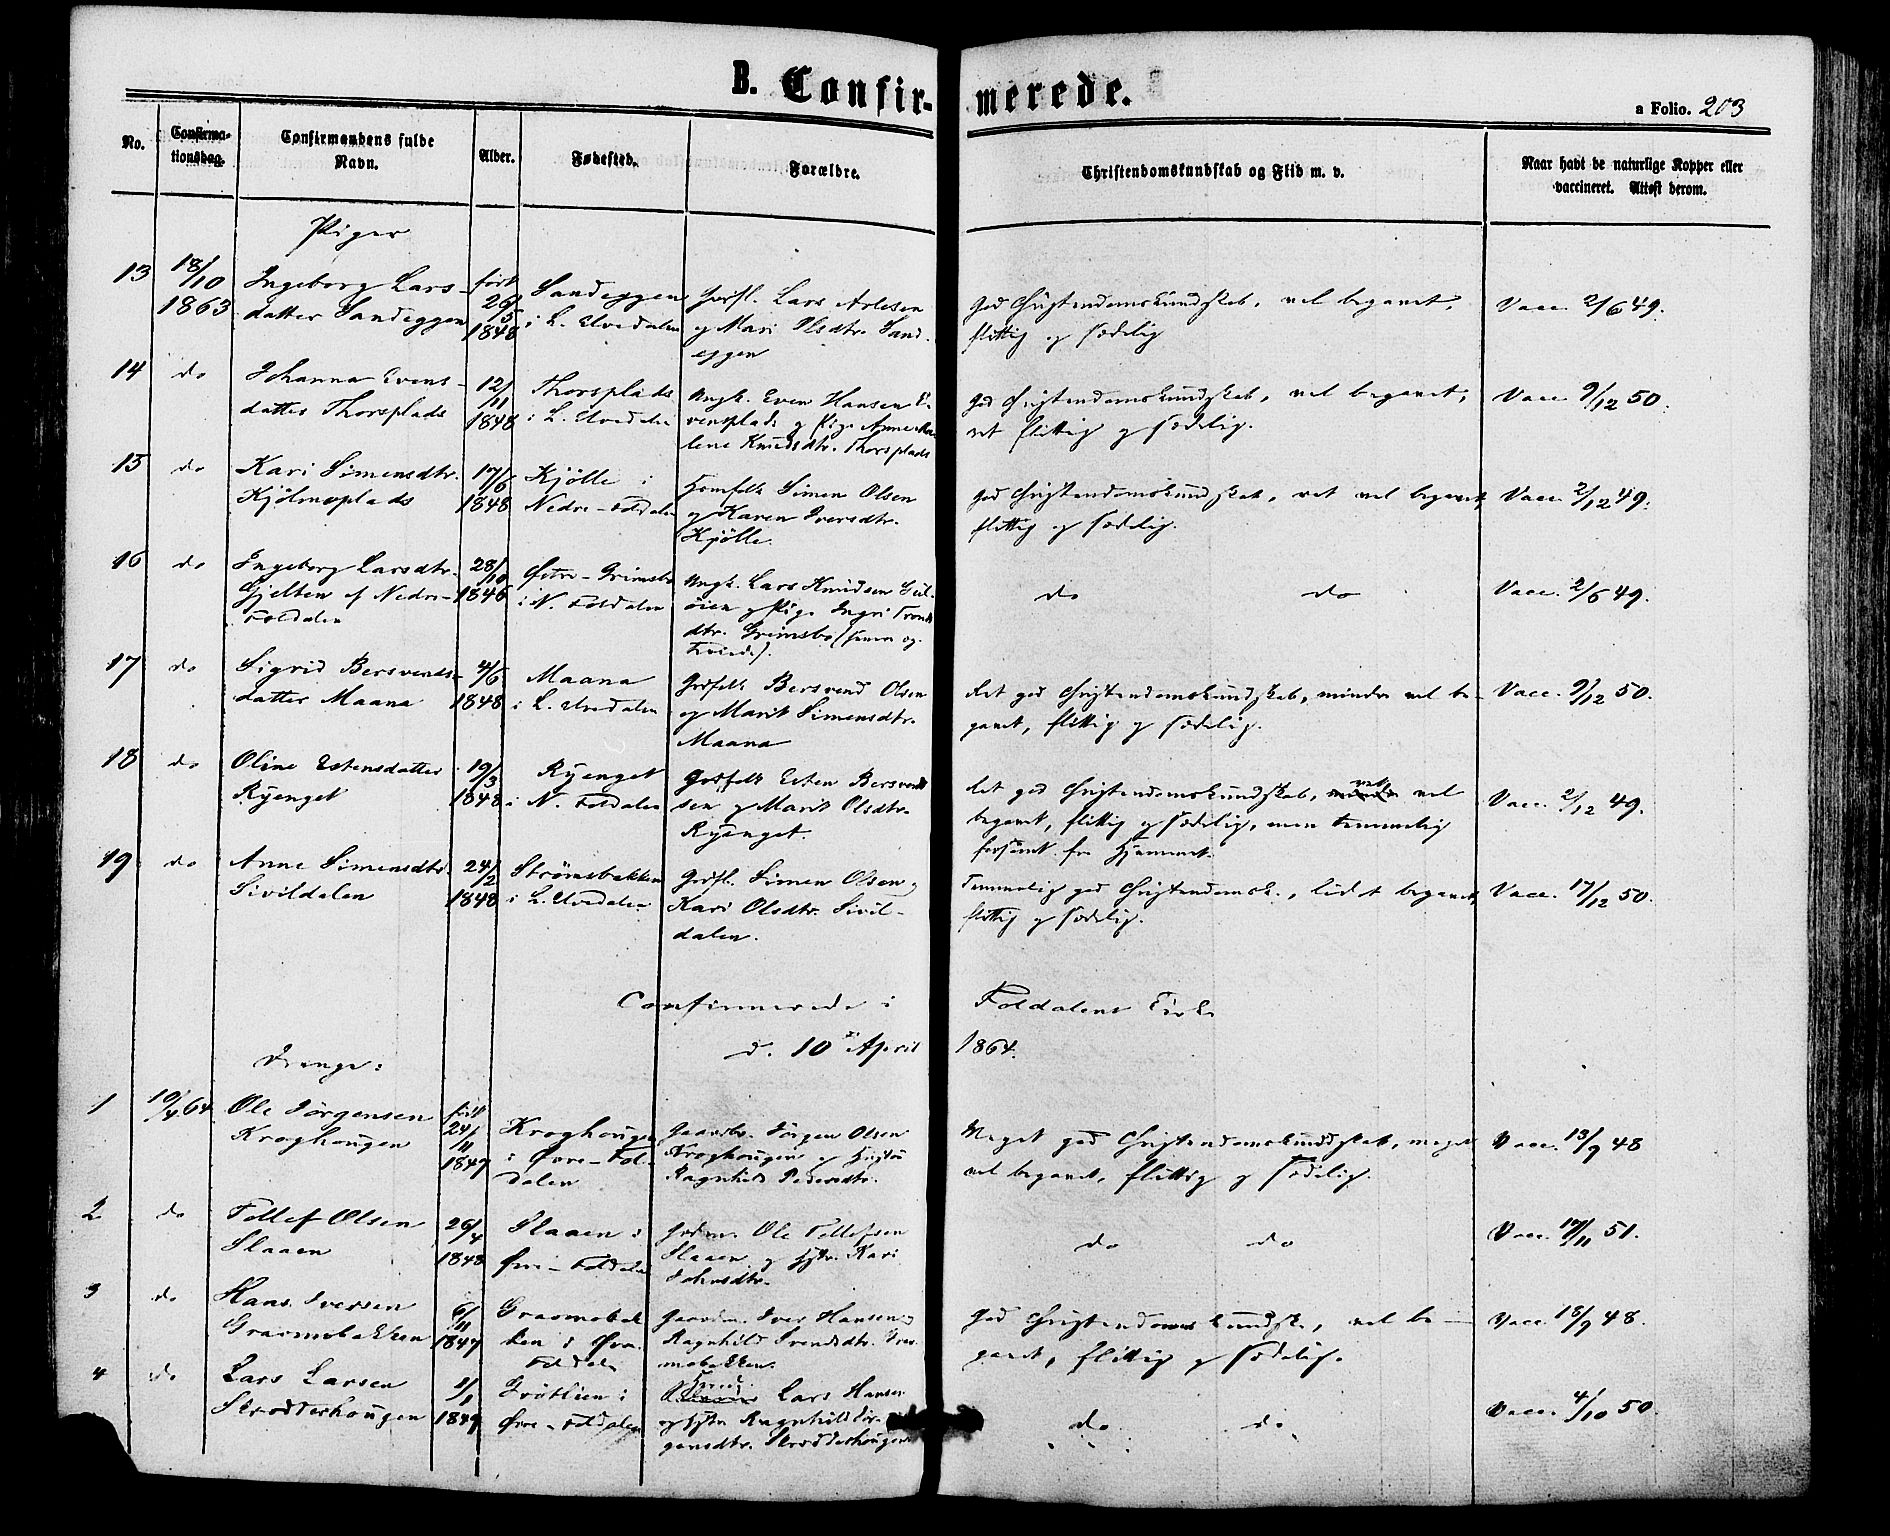 B. Confirmerede.
a Folio. 203
No.
Confirmationsdag.
Confirmandens fulde Navn.
Alder.
Fødested.
Forældre.
Christendomskundskab og Flid m. v.
Naar havt de naturlige Kopper eller
vaccineret. Attest derom.
Piger
13 18/10 1863 Ingeborg Lars-
datter Sandeggen
født 26/5 1848
Sandeggen
i L. Elvedalen
Gdfl. Lars Arlesen
og Mari Olsdtr. Sand-
eggen
God Christendomskundskab, vel begavet,
flittig og sædelig
Vacc. 2/6 49.
14 do Johanna Evens-
datter Thorsplads
12/11 1848
Thorsplads
i L. Elvedalen
Ungk. Even Hansen E-
vensplads og Pige Anne Ma-
lene Knudsdtr. Thorsplads
God Christendomskundskab, vel begavet,
ret flittig og sædelig.
Vacc. 9/12 50.
15 do Kari Simensdtr.
Kjölneplads
17/6 1848
Kjölle i
Nedre-Foldalen
Huusfolk Simen Olsen
og Karen Iversdtr.
Kjölle.
God Christendomskundskab, ret vel begavet,
flittig og sædelig.
Vacc. 2/12 49.
16 do Ingeborg Larsdtr.
Gjelten af Nedre-
Foldalen
28/10 1846
Øvre-Grimsbo
i N. Foldalen
Ungk. Lars Knudsen
og Pige Ingri Trond
dtr. Grimsbo
do do
Vacc. 2/6 49.
17 do Sigrid Bersvends-
datter Maana
4/6 1848
Maana
i L. Elvedalen
Gdfolk Bersvend Olsen
og Marit Simensdtr.
Maana
Ret god Christendomskundskab, mindre vel be-
gavet, flittig og sædelig.
Vacc. 9/12 50.
18 do Oline Estensdatter
Ryenget
19/3 1848
Ryenget
i N. Foldalen
Gdfolk Esten Bersvend
sen og Marit Olsdtr.
Ryenget.
Ret god Christendomskundskab, ret vel
begavet, flittig og sædelig, men temmelig
forsömt fra Hjemmet.
Vacc. 2/12 49.
19 do Anne Simensdtr.
Sivildalen
24/2 1848
Strömsbakken
i L. Elvedalen
Gdfl. Simen Olsen og
Kari Olsdtr. Sivil-
dalen.
Temmelig god Christendomsk., lidet begavet,
flittig og sædelig.
Vacc. 17/12 50.
Confirmerede i Foldalens Kirke
d. 10 April 1864.
Drenge:
1 10/4 64 Ole Jörgensen
Kroghougen
født 24/11 1847
Kroghougen
i Øvre-Fol-
dalen
Gaardbr. Jörgen Olsen
Kroghougen og Hustru
Ragnhild Pedersdtr.
Meget god Christendomskundskab, meget
vel begavet, flittig og sædelig.
Vacc. 13/9 48
2 do Tollef Olsen
Slaaen
26/4 1848
Slaaen i
Øvre-Foldalen
Gdm. Ole Tollefsen
Slaaen og Hstr. Kari
Johnsdtr.
do do
Vacc. 17/11 51.
3 do Hans Iversen
Gravmobakken
6/11 1847
Gravmobak
ken i Øvre
Foldalen
Gaardm. Iver Hansen og
Ragnhild Svendsdtr. Grav-
mobakken.
God Christendomskundsk., vel be-
gavet, flittig og sædelig.
Vacc. 18/9 48.
4 do Lars Larsen
Skroddershougen
1/1 1849
Grötlien i
Øvre-Foldalen
Lars Hansen
og Hstr. Ragnhild Jör-
gensdtr. Skroddershougen
do do
Vacc. 4/10 50.